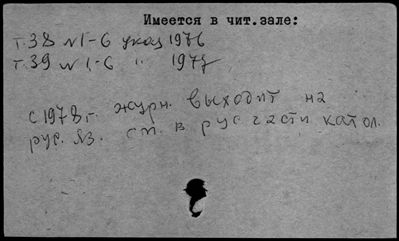 Имеется в чит.зале:
т.38 №1-6 указ 1976
т.39 №1-6 " 1977
с 1978 г. журн. выходит на
рус. яз. см. в рус части катол.